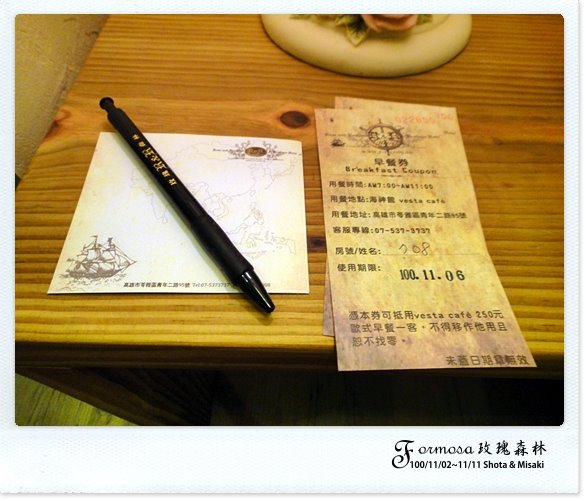 玫瑰森林
高雄市苓雅區青年二路95號 Tel:07-5373737
早餐券
Breakfast Coupon
用餐時間:AM7:00~AM11:00
用餐地點:海神館 vesta café
用餐地址:高雄市苓雅區青年二路95號
客服專線:07-537-3737
房號/姓名: 708
使用期限: 100.11.06
憑本券可抵用vesta café 250元
歐式早餐一客，不得移作他用且
恕不找零。
未蓋日期章無效
Formosa 玫瑰森林
100/11/02~11/11 Shota & Misaki